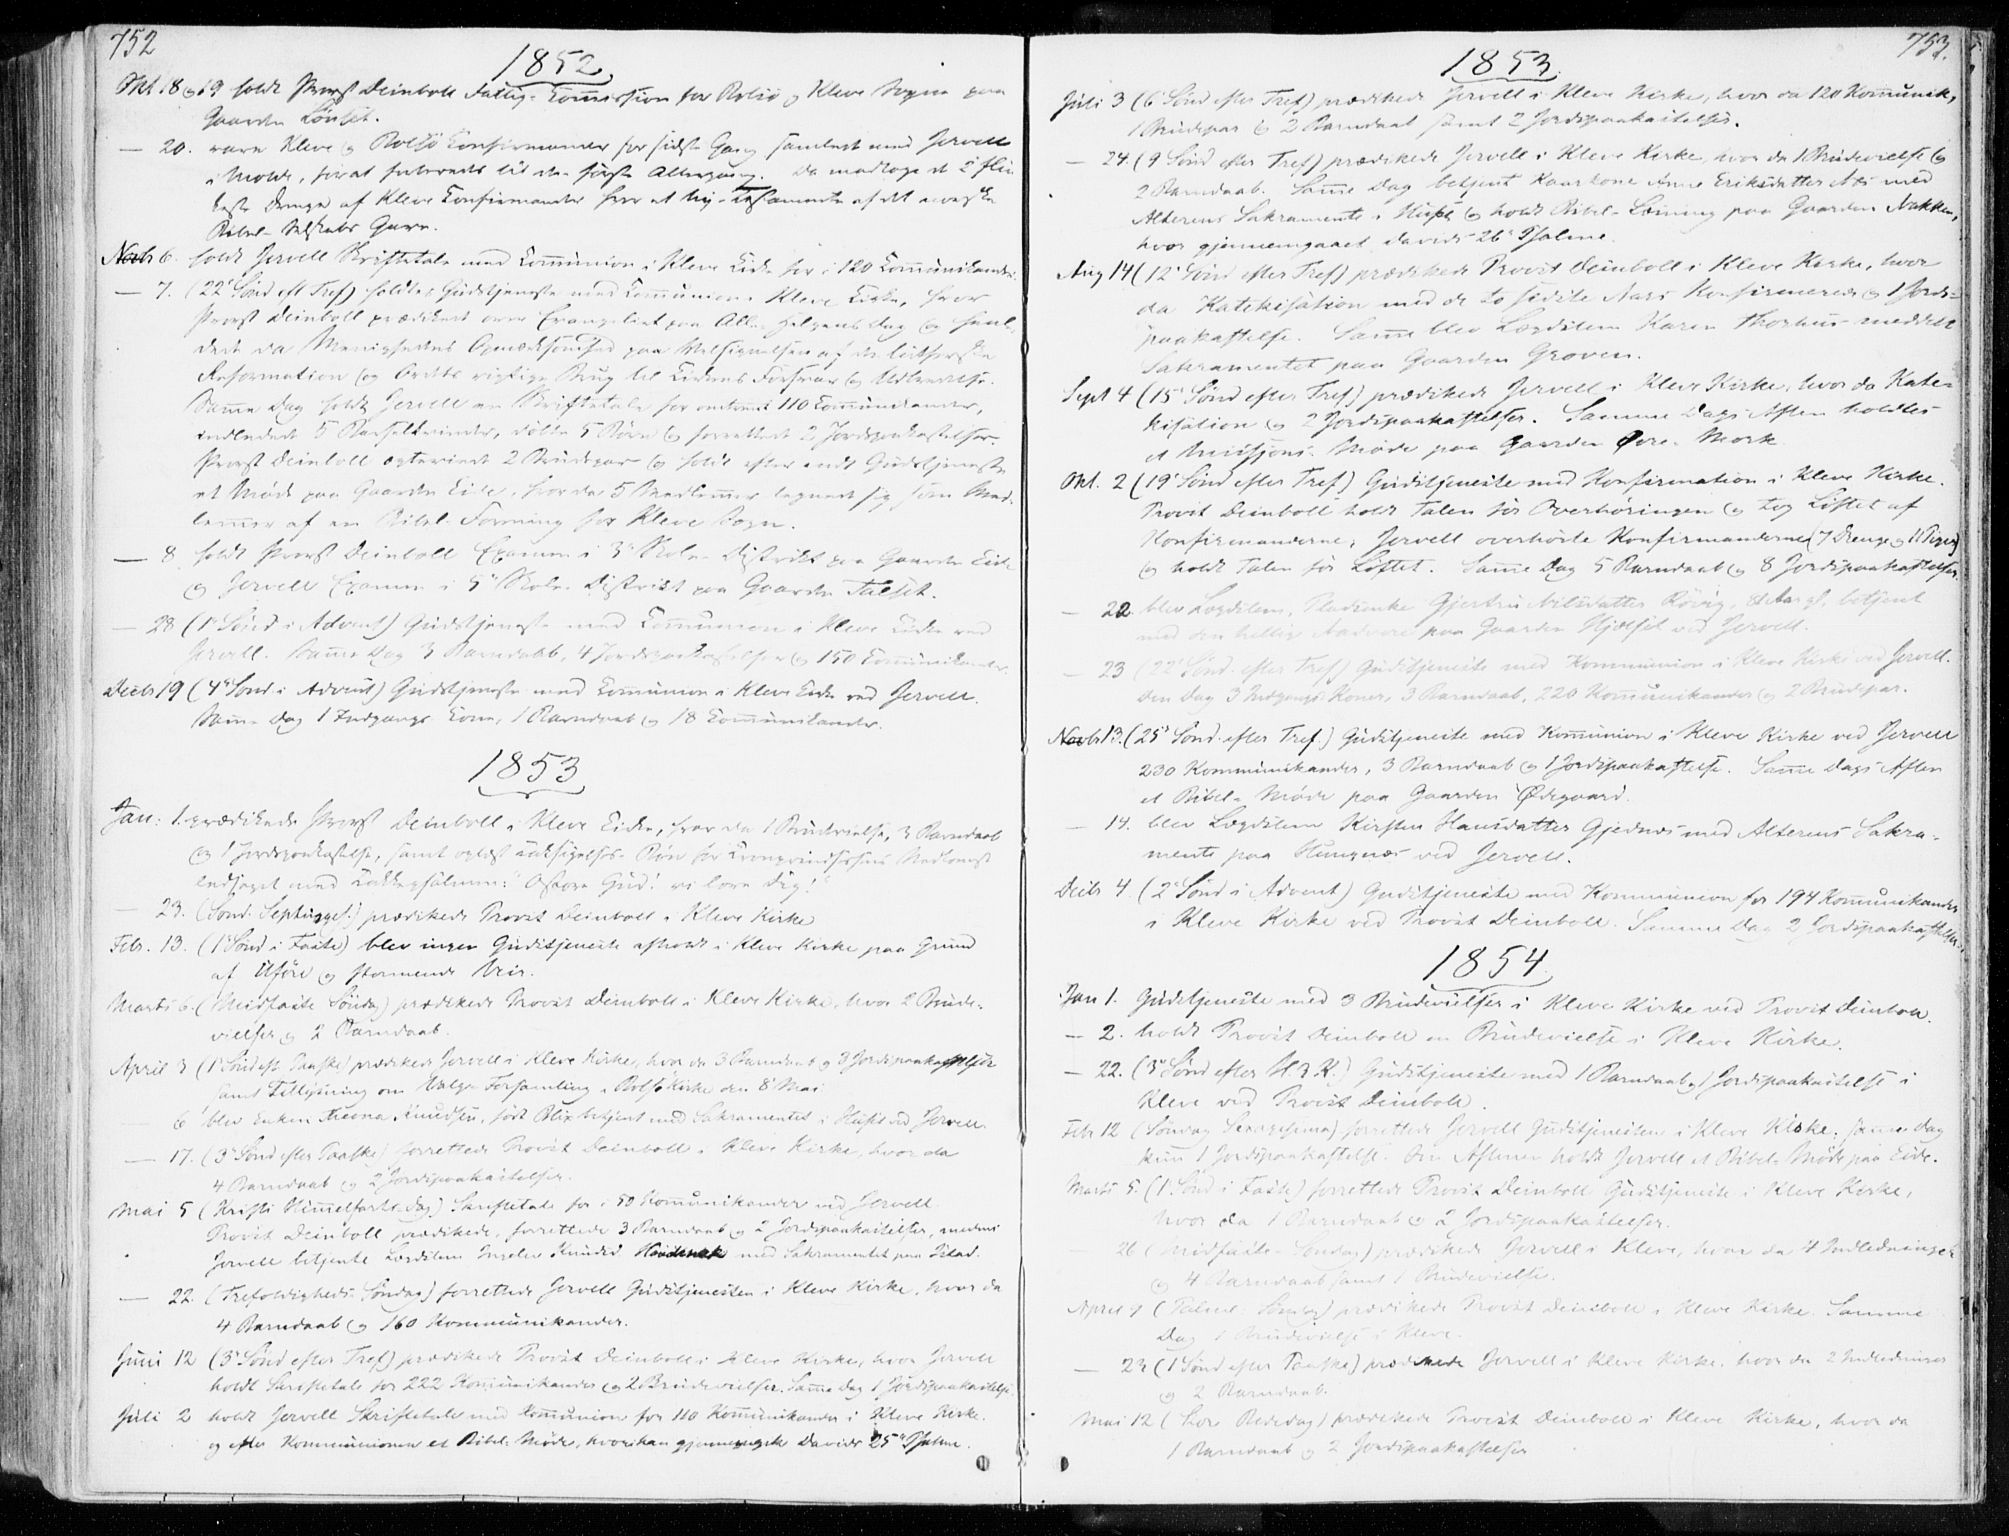 752
1852
Okt 18 og 19 holdt Provst Deinboll Fattig-Commission for Bolsø og Kleve Sogne paa
Gaarden Lønset.
— 20. vare Kleve og Bolsø Confirmander for sidste Gang samlede med Jervell
i Molde, for at forberedes til den første Altergang. Da modtoge de 2 flin-
keste Drenge af Kleve Confirmander hver et Ny-Testamente af det norske
Bibel-Selskabs Gave.
Novb 6. holdt Jervell Skriftetale med Communion i Kleve Kirke for 120 Communikander.
— 7. (22 Sønd eft Tref) holdtes Gudstjeneste med Communion i Kleve Kirke, hvor
Provst Deinboll prædikede over Evangeliet paa Alle Helgens Dag og henle-
dede da Menighedens Opmærksomhed paa Velsignelsen af den lutherske
Reformation og Ordets rigtige Brug til Kirkens Forsvar og Udbredelse.
Samme Dag holdt Jervell en Skriftetale for omtrent 110 Communikander,
indledede 5 Barselkvinder, døbte 5 Børn og forrettede 2 Jordspaakastelser.
Provst Deinboll egteviede 2 Brudepar og holdt efter endt Gudstjeneste
et Møde paa Gaarden Eide, hvor da 5 Medlemmer tegnede sig som Med-
lemmer af en Bibel-Forening for Kleve Sogn.
— 8. holdt Provst Deinboll Examen i 3 Skole-Distrikt paa Gaarden Eide
og Jervell Examen i 5 Skole-Distrikt paa Gaarden Talset.
— 28 (1 Sønd i Advent) Gudstjeneste med Communion i Kleve Kirke ved
Jervell. Samme Dag 3 Barndaab, 4 Jordspaakastelser og 150 Communikander.
Decbr 19 (4 Sønd i Advent) Gudstjeneste med Communion i Kleve Kirke ved Jervell.
Samme Dag 1 Indgangs Kone, 1 Barndaab og 18 Communikander.
1853
Jan: 1. prædikede Provst Deinboll i Kleve Kirke, hvor da 1 Brudevielse, 3 Barndaab
og 1 Jordspaakastelse, samt oplæst Taksigelses-Bøn for Kronprindsessens Nedkomst
ledsaget med Takkepsalmen: "O store Gud! vi love Dig!"
— 23. (Sønd. Septuages.) prædikede Provst Deinboll i Kleve Kirke
Febr. 13. (1 Sønd i Faste) blev ingen Gudstjeneste afholdt i Kleve Kirke paa Grund
af Uføre og stormende Veir.
Marts 6. (Midfaste Søndag) prædikede Provst Deinboll i Kleve Kirke, hvor 2 Brude-
vielser og 2 Barndaab.
April 3 (1 Sønd eft. Paaske) prædikede Jervell i Kleve Kirke, hvor da 3 Barndaab og 3 Jordspaakastelser
samt Tillysning om Valg-Forsamling i Bolsø Kirke den 8 Mai
6 blev Enken Knudsen, født Blix betjent med Sakramentet i Huset ved Jervell.
— 17. (3 Sønd efter Paaske) forrettede Provst Deinboll i Kleve Kirke, hvor da
4 Barndaab og 2 Jordspaakastelser.
Mai 5 (Kristi Himmelfarts-dag) Skriftetale for 50 Kommunikander ved Jervell.
Provst Deinboll prædikede, forrettede 3 Barndaab og 2 Jordspaakastelser, medens
Jervell betjente Lægdslem med Sakramentet paa
— 22. (Trefoldigheds-Søndag) forrettede Jervell Gudstjenesten i Kleve Kirke, hvor da
4 Barndaab og 160 Kommunikander.
Juni 12 (3 Sønd efter Tref) prædikede Provst Deinboll i Kleve Kirke, hvor Jervell
holdt Skriftetale for 222 Kommunikander og 2 Brudevielser. Samme Dag 1 Jordspaakastelse.
Juli 2 holdt Jervell Skriftetale med Communion for 110 Kommunikander i Kleve Kirke.
og efter Kommunionen et Bibel-Møde, hvor han gjennemgik Davids 25 Psalme.
753.
1853.
Juli 3 (6 Sønd efter Tref) prædikede Jervell i Kleve Kirke, hvor da 120 Kommunik,
1 Brudepar og 2 Barndaab samt 2 Jordspaakastelser.
— 24. (9 Sønd efter Tref) prædikede Jervell i Kleve Kirke, hvor da 1 Brudevielse og
2 Barndaab. Samme Dag betjent Kaarkone Anne Eriksdatter Næs med
Alterens Sakramente i Huset og holdt Bibel-Læsning paa Gaarden Nakken,
hvor gjennemgaaet Davids 26 Psalme.
Aug 14 (12 Sønd efter Tref) prædikede Provst Deinboll i Kleve Kirke, hvor
da Katekisation med de to sidste Aars Konfirmerede og 1 Jords-
paakastelse. Samme blev Lægdslem Karen Thorhus meddelt
Sakramentet paa Gaarden Groven.
Sept 4 (15 Sønd efter Tref) prædikede Jervell i Kleve Kirke, hvor da Kate-
kisation og 2 Jordspaakastelser. Samme Dags Aften holdtes
et Missions-Møde paa Gaarden Øvre-Mork
Okt. 2 (19 Sønd efter Tref) Gudstjeneste med Konfirmation i Kleve Kirke.
Provst Deinboll holdt Talen før Overhøringen og tog Løftet af
Konfirmanderne; Jervell overhørte Konfirmanderne (7 Drenge og 11 Piger)
og holdt Talen før Løftet. Samme Dag 5 Barndaab og 8 Jordspaakastelser.
— 22. blev Lægdslem, Pladsenke Gjertru Nilsdatter Røvig, betjent
med den hellige Nadvere paa Gaarden Hjelset ved Jervell.
— 23 (22 Sønd. efter Tref) Gudstjeneste med Kommunion i Kleve Kirke ved Jervell.
Den Dag 3 Indgangs Koner, 3 Barndaab, 220 Kommunikander og 2 Brudepar.
Novb 13. (25 Sønd. efter Tref.) Gudstjeneste med Kommunion i Kleve Kirke ved Jervell
230 Kommunikander, 3 Barndaab og 1 Jordspaakastelse. Samme Dags Aften
et Bibel-Møde paa Gaarden Ødegaard.
— 14. blev Lægdslem Kirsten Hansdatter Gjednæs med Alterens Sakra-
mente paa Hungnæs ved Jervell.
Decbr 4. (2 Sønd i Advent) Gudstjeneste med Kommunion for 194 Kommunikander
i Kleve Kirke ved Provst Deinboll. Samme Dag 2 Jordspaakastelser.
1854.
Jan 1. Gudstjeneste med 3 Brudevielser i Kleve Kirke ved Provst Deinboll.
— 2. holdt Provst Deinboll en Brudevielse i Kleve Kirke.
— 22. (3 Sønd efter H.3.K.) Gudstjeneste med 1 Barndaab og 1 Jordspaakastelse i
Kleve ved Provst Deinboll.
Febr 12 (Søndag Sexagesima) forrettede Jervell Gudstjenesten i Kleve Kirke. Samme Dag
kun 1 Jordspaakastelse. Om Aftenen holdt Jervell et Bibel-Møde paa Eide.
Marts 5. (1. Sønd i Faste) forrettede Provst Deinboll Gudstjeneste i Kleve Kirke,
hvor da 1 Barndaab og 2 Jordspaakastelser.
— 26 (Midfaste-Søndag) prædikede Jervell i Kleve, hvor da 4 Indledninger
og 4 Barndaab samt 1 Brudevielse.
April 9 (Palme-Søndag) prædikede Provst Deinboll i Kleve Kirke. Samme
Dag 1 Brudevielse i Kleve.
— 23 (1 Sønd efter Paaske) prædikede Jervell i Kleve Kirke, hvor da 2 Indledninger
og 2 Barndaab.
Mai 12 (Store Bededag) prædikede Provst Deinboll i Kleve Kirke, hvor da
1 Barndaab og 2 Jordspaakastelser